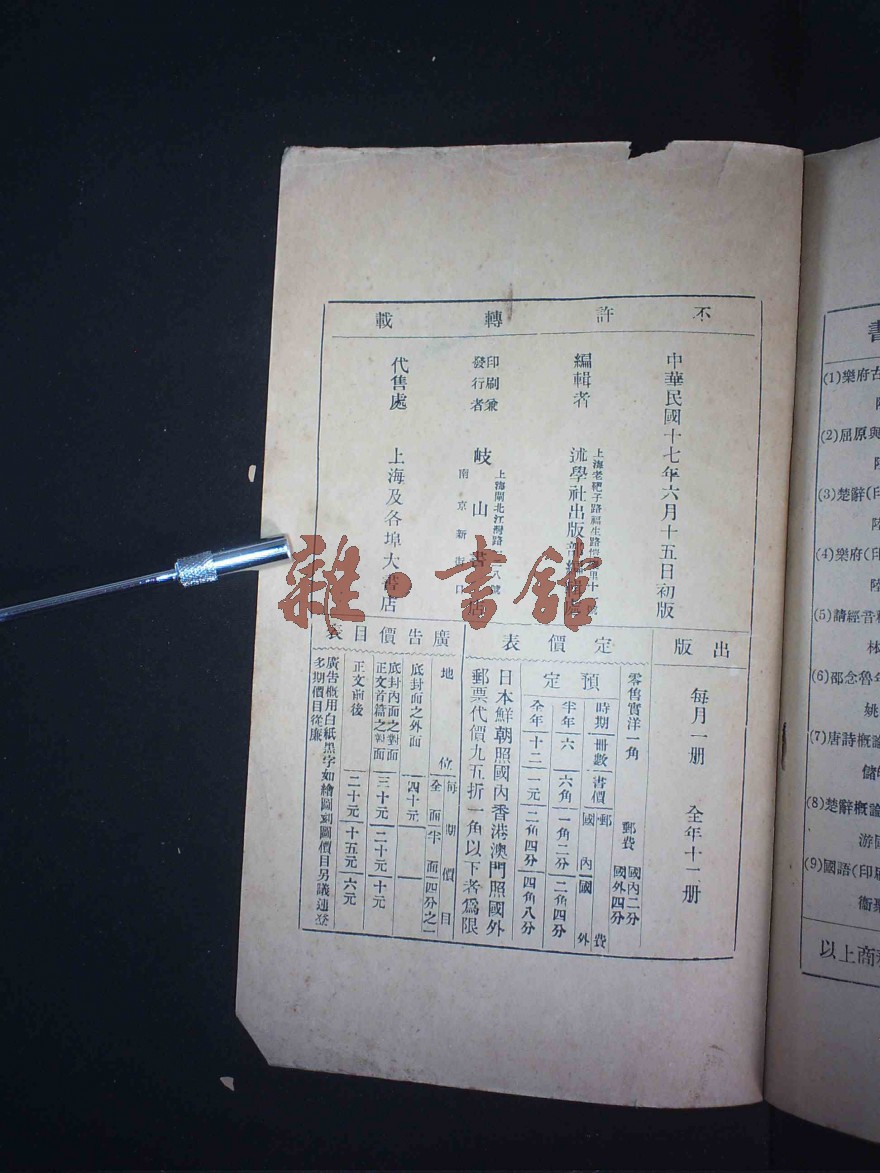 不許轉載
中華民國十七年六月十五日初版
編輯者
上海老靶子路福生路
述學社出版部
印刷兼
發行者
上海閘北江灣路
岐山書店
南京新街口
代售處
上海及各埠大書店
出版
每月一册 全年十二册
定價表
零售實洋一角 郵費 國內二分 國外四分
預定
時期 册數 書價 郵費 國內 國外
半年 六 六角 一角二分 二角四分
全年 十二 一元 二角四分 四角八分
日本鮮朝照國內香港澳門照國外
郵票代價九五折一角以下者爲限
廣告價目表
地位 每期價目
全面 半面 四分之一
底封面之外面 四十元
底封內面之對面
正文首篇之對面 三十元 二十元 十元
正文前後 二十元 十五元 六元
廣告概用白紙黑字如繪圖刻圖價目另議連登
多期價目從廉
雜·書館
書
(1)樂府古
陸
(2)屈原與
陸
(3)楚辭(印
陸
(4)樂府(印
陸
(5)詩經音
林
(6)邵念魯年
姚
(7)唐詩概論
儲
(8)楚辭概論
游國
(9)國語(印
衞聚
以上商